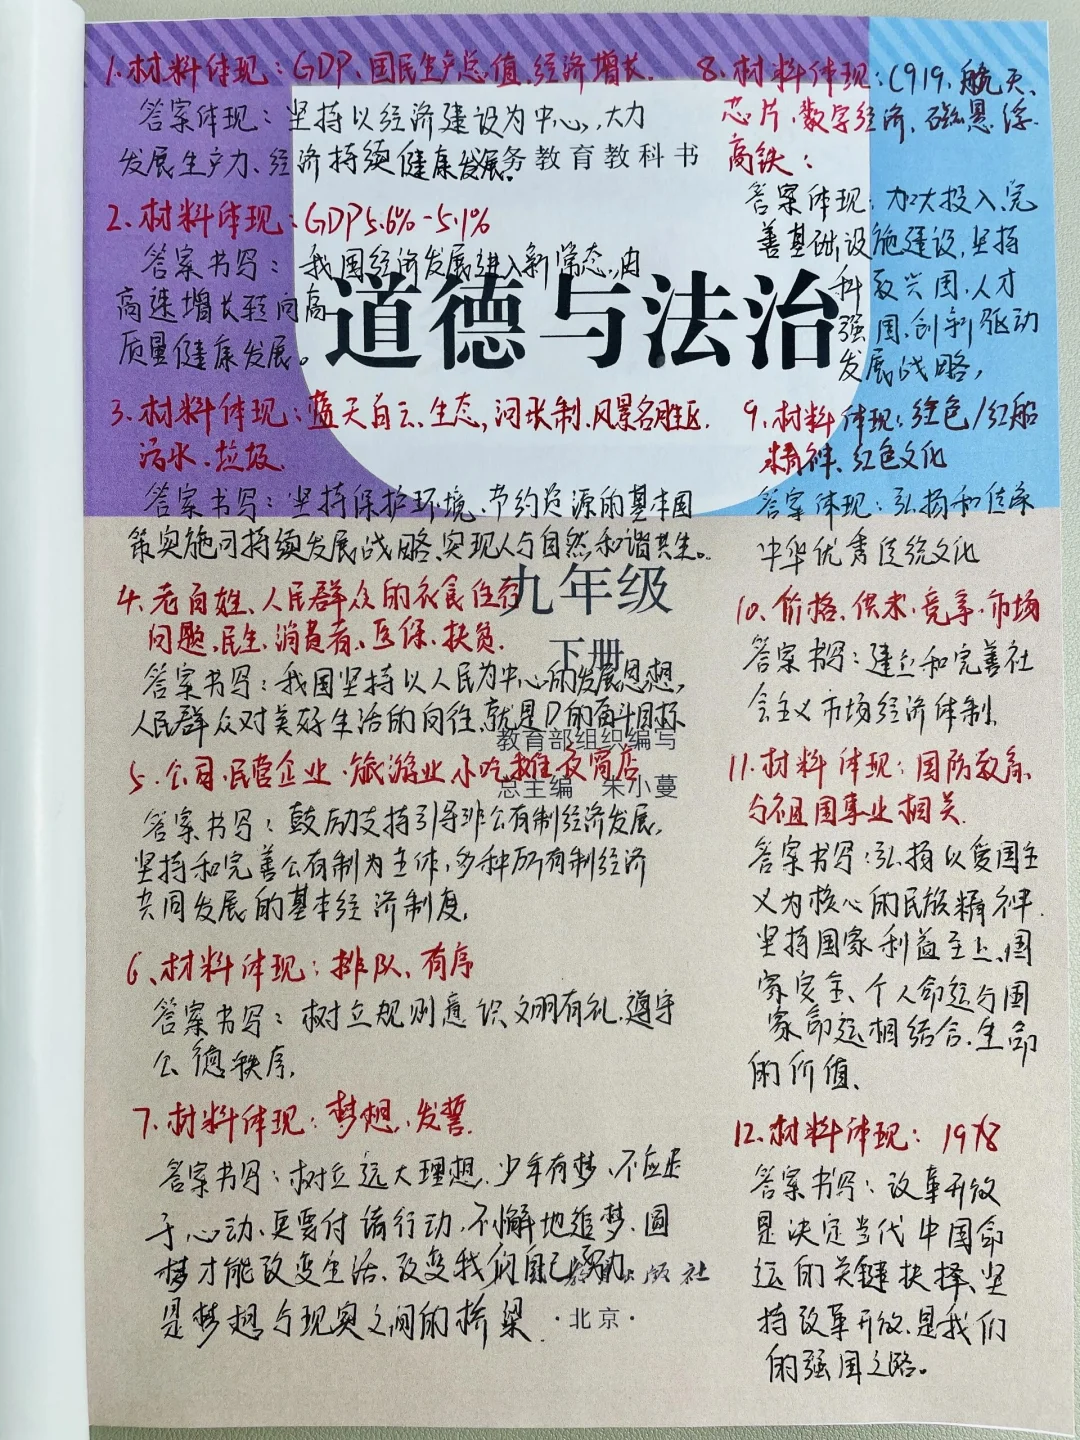 1.材料体现：GDP、国民生产总值、经济增长.
答案体现：坚持以经济建设为中心，大力
发展生产力、经济持续健康发展。
义务教育教科书
2.材料体现：GDP5.6%-5.1%
答案书写：我国经济发展进入新常态，由
高速增长转向高
质量健康发展。
道德与法治
3.材料体现：蓝天白云、生态，河长制、风景名胜区.
污水、垃圾
答案书写：坚持保护环境、节约资源的基本国
策实施可持续发展战略、实现人与自然和谐共生。
九年级
下册
4、老百姓、人民群众的衣食住行
问题、民生、消费者、医保、扶贫.
答案书写：我国坚持以人民为中心的发展思想，
人民群众对美好生活的向往，就是D的奋斗目标
教育部组织编写
5.公司、民营企业、旅游业小吃摊夜宵店
总主编 朱小蔓
答案书写：鼓励支持引导非公有制经济发展，
坚持和完善公有制为主体，多种所有制经济
共同发展的基本经济制度，
6、材料体现：排队、有序
答案书写：树立规则意识文明有礼，遵守
公德秩序，
7.材料体现：梦想，发誓.
答案书写：树立远大理想，少年有梦、不应止
于心动、更要付诸行动，不懈地追梦、圆
梦才能改变生活、改变我们自己努力
版社
是梦想与现实之间的桥梁.
·北京·
8.材料体现：C919、航天、
芯片、数字经济、磁悬浮、
高铁：
答案体现：加大投入、完
善基础设施建设，坚持
科教兴国，人才
强国，创新驱动
发展战略，
9.材料体现：红色/红船
精神、红色文化
答案体现：弘扬和传承
中华优秀传统文化
10、价格、供求、竞争、市场
答案书写：建立和完善社
会主义市场经济体制、
11.材料体现：国防教育、
与祖国事业相关.
答案书写：弘扬以爱国主
义为核心的民族精神.
坚持国家利益至上、国
家安全、个人命运与国
家命运相结合，生命
的价值、
12、材料体现：1978
答案书写：改革开放
是决定当代中国命
运的关键抉择，坚
持改革开放、是我们
的强国之路。